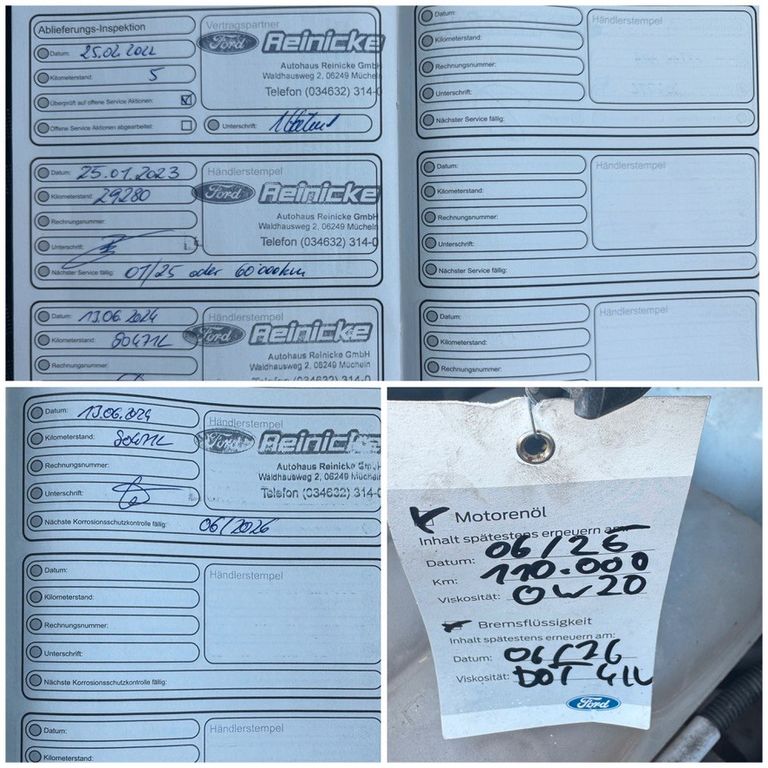 Ablieferungs-Inspektion
Vertragspartner
Datum: 25.02.2022
Ford Reinicke
Kilometerstand: 5
Autohaus Reinicke GmbH
Waldhausweg 2, 06249 Mücheln
Überprüft auf offene Service Aktionen:
Telefon (034632) 314-0
Offene Service Aktionen abgearbeitet:
Unterschrift:
Datum: 25.01.2023
Händlerstempel
Kilometerstand: 29280
Ford Reinicke
Rechnungsnummer:
Autohaus Reinicke GmbH
Waldhausweg 2, 06249 Mücheln
Unterschrift:
Telefon (034632) 314-0
Nächster Service fällig: 01/25 oder 60'000km
Datum: 13.06.2024
Händlerstempel
Kilometerstand:
Ford Reinicke
Rechnungsnummer:
Autohaus Reinicke GmbH
Waldhausweg 2, 06249 Mücheln
Telefon (034632) 314-0
Datum:
Händlerstempel
Kilometerstand:
Rechnungsnummer:
Unterschrift:
Nächster Service fällig:
Datum:
Händlerstempel
Kilometerstand:
Rechnungsnummer:
Unterschrift:
Nächster Service fällig:
Datum:
Händlerstempel
Kilometerstand:
Rechnungsnummer:
Datum: 13.06.2024
Händlerstempel
Kilometerstand:
Ford Reinicke
Rechnungsnummer:
Autohaus Reinicke GmbH
Waldhausweg 2, 06249 Mücheln
Unterschrift:
Telefon (034632) 314-0
Nächste Korrosionsschutzkontrolle fällig: 06/2026
Datum:
Händlerstempel
Kilometerstand:
Rechnungsnummer:
Unterschrift:
Nächste Korrosionsschutzkontrolle fällig:
Datum:
Händlerstempel
Kilometerstand:
Motorenöl
Inhalt spätestens erneuern am:
Datum: 06/26
Km: 110.000
Viskosität: 0W20
Bremsflüssigkeit
Inhalt spätestens erneuern am:
Datum: 06/26
Viskosität: DOT
Ford